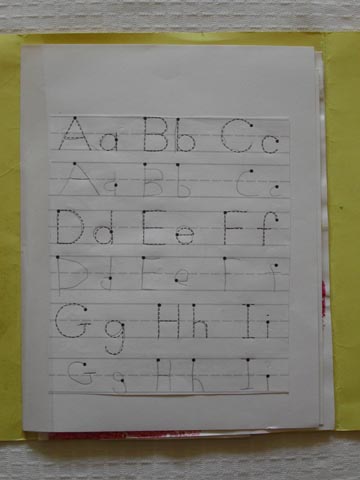 Aa Bb Cc
Aa Bb Cc
Dd Ee Ff
Dd Ee Ff
Gg Hh Ii
Gg Hh Ii